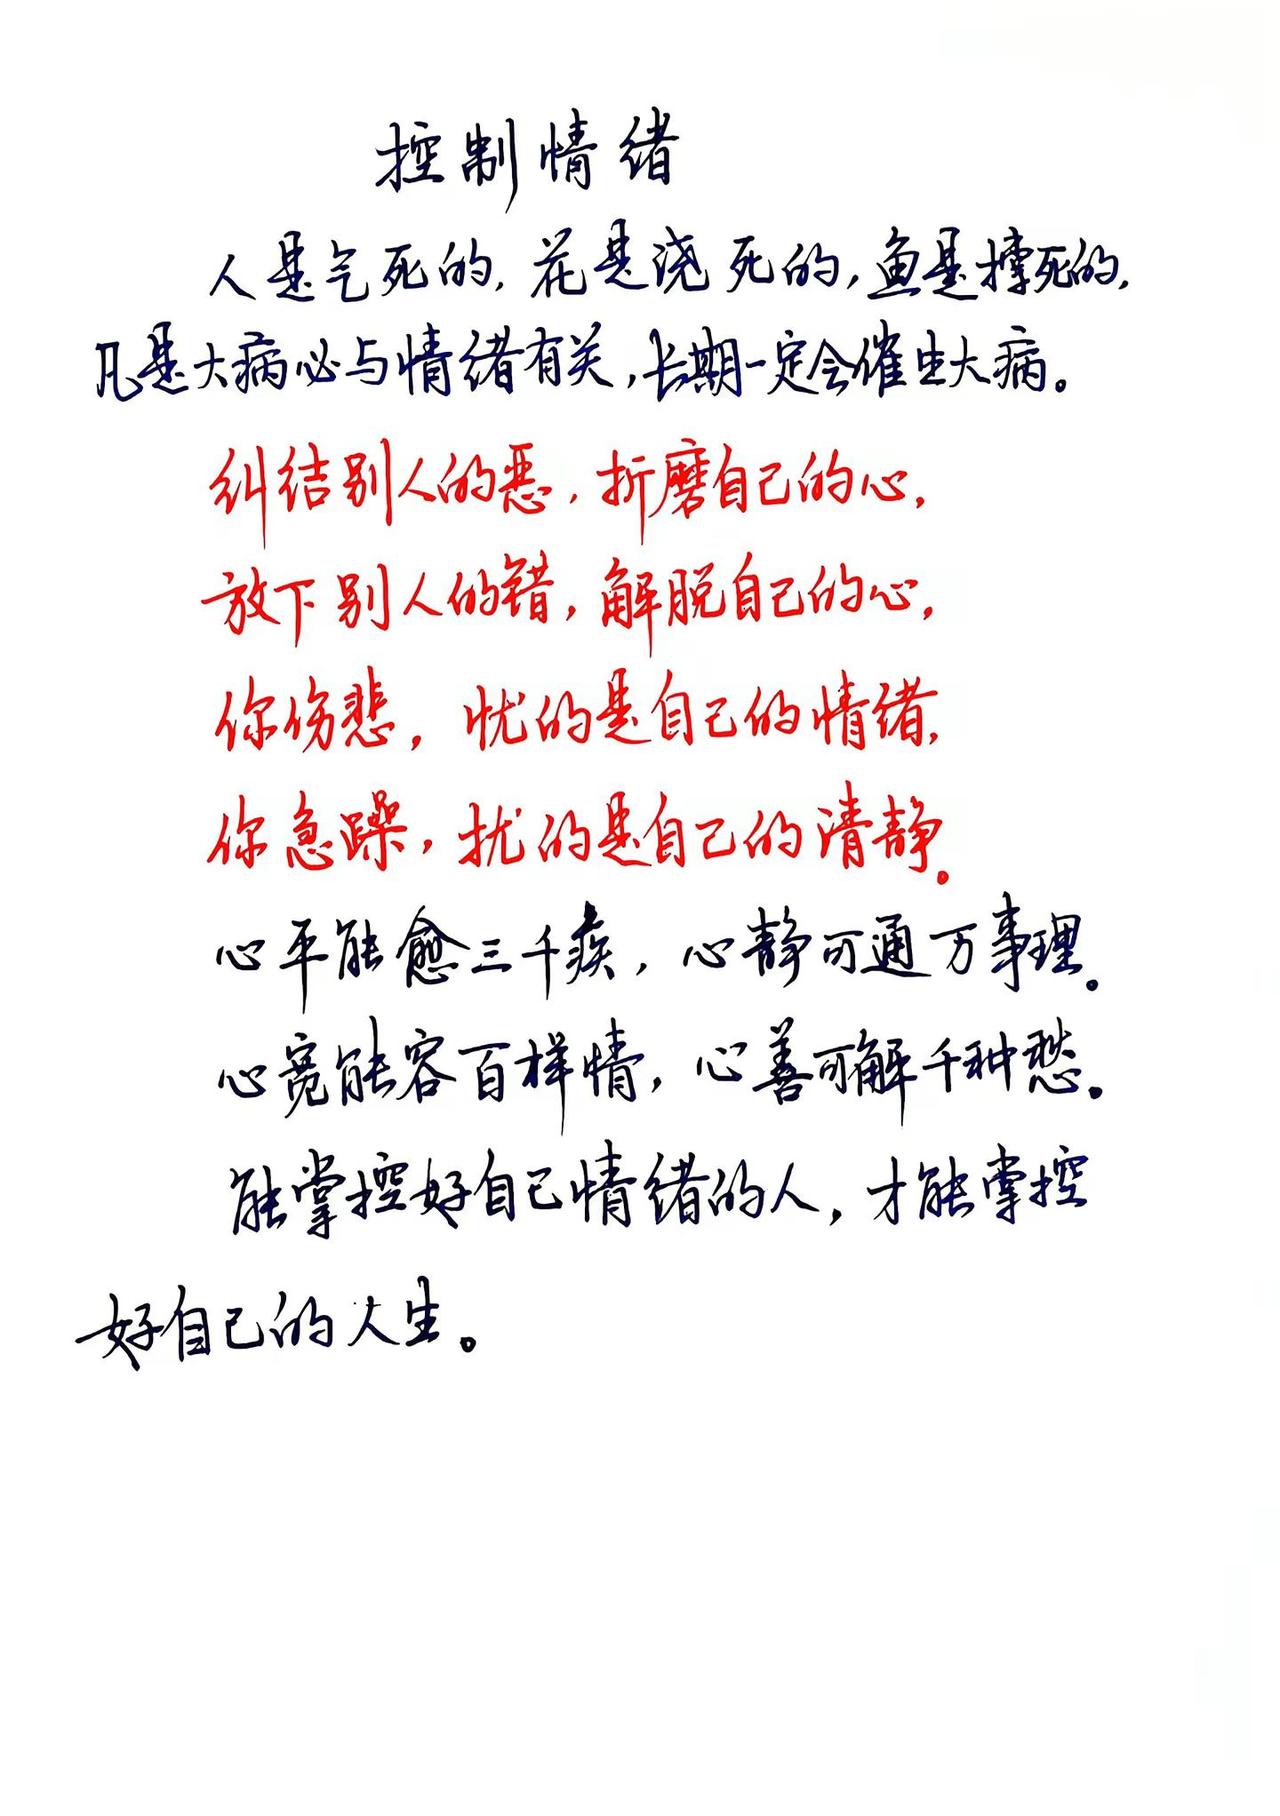 控制情绪
人是气死的，花是浇死的，鱼是撑死的，
凡是大病必与情绪有关，长期一定会催生大病。
纠结别人的恶，折磨自己的心，
放下别人的错，解脱自己的心，
你伤悲，忧的是自己的情绪，
你急躁，扰的是自己的清静。
心平能愈三千疾，心静可通万事理。
心宽能容百样情，心善可解千种愁。
能掌控好自己情绪的人，才能掌控
好自己的人生。